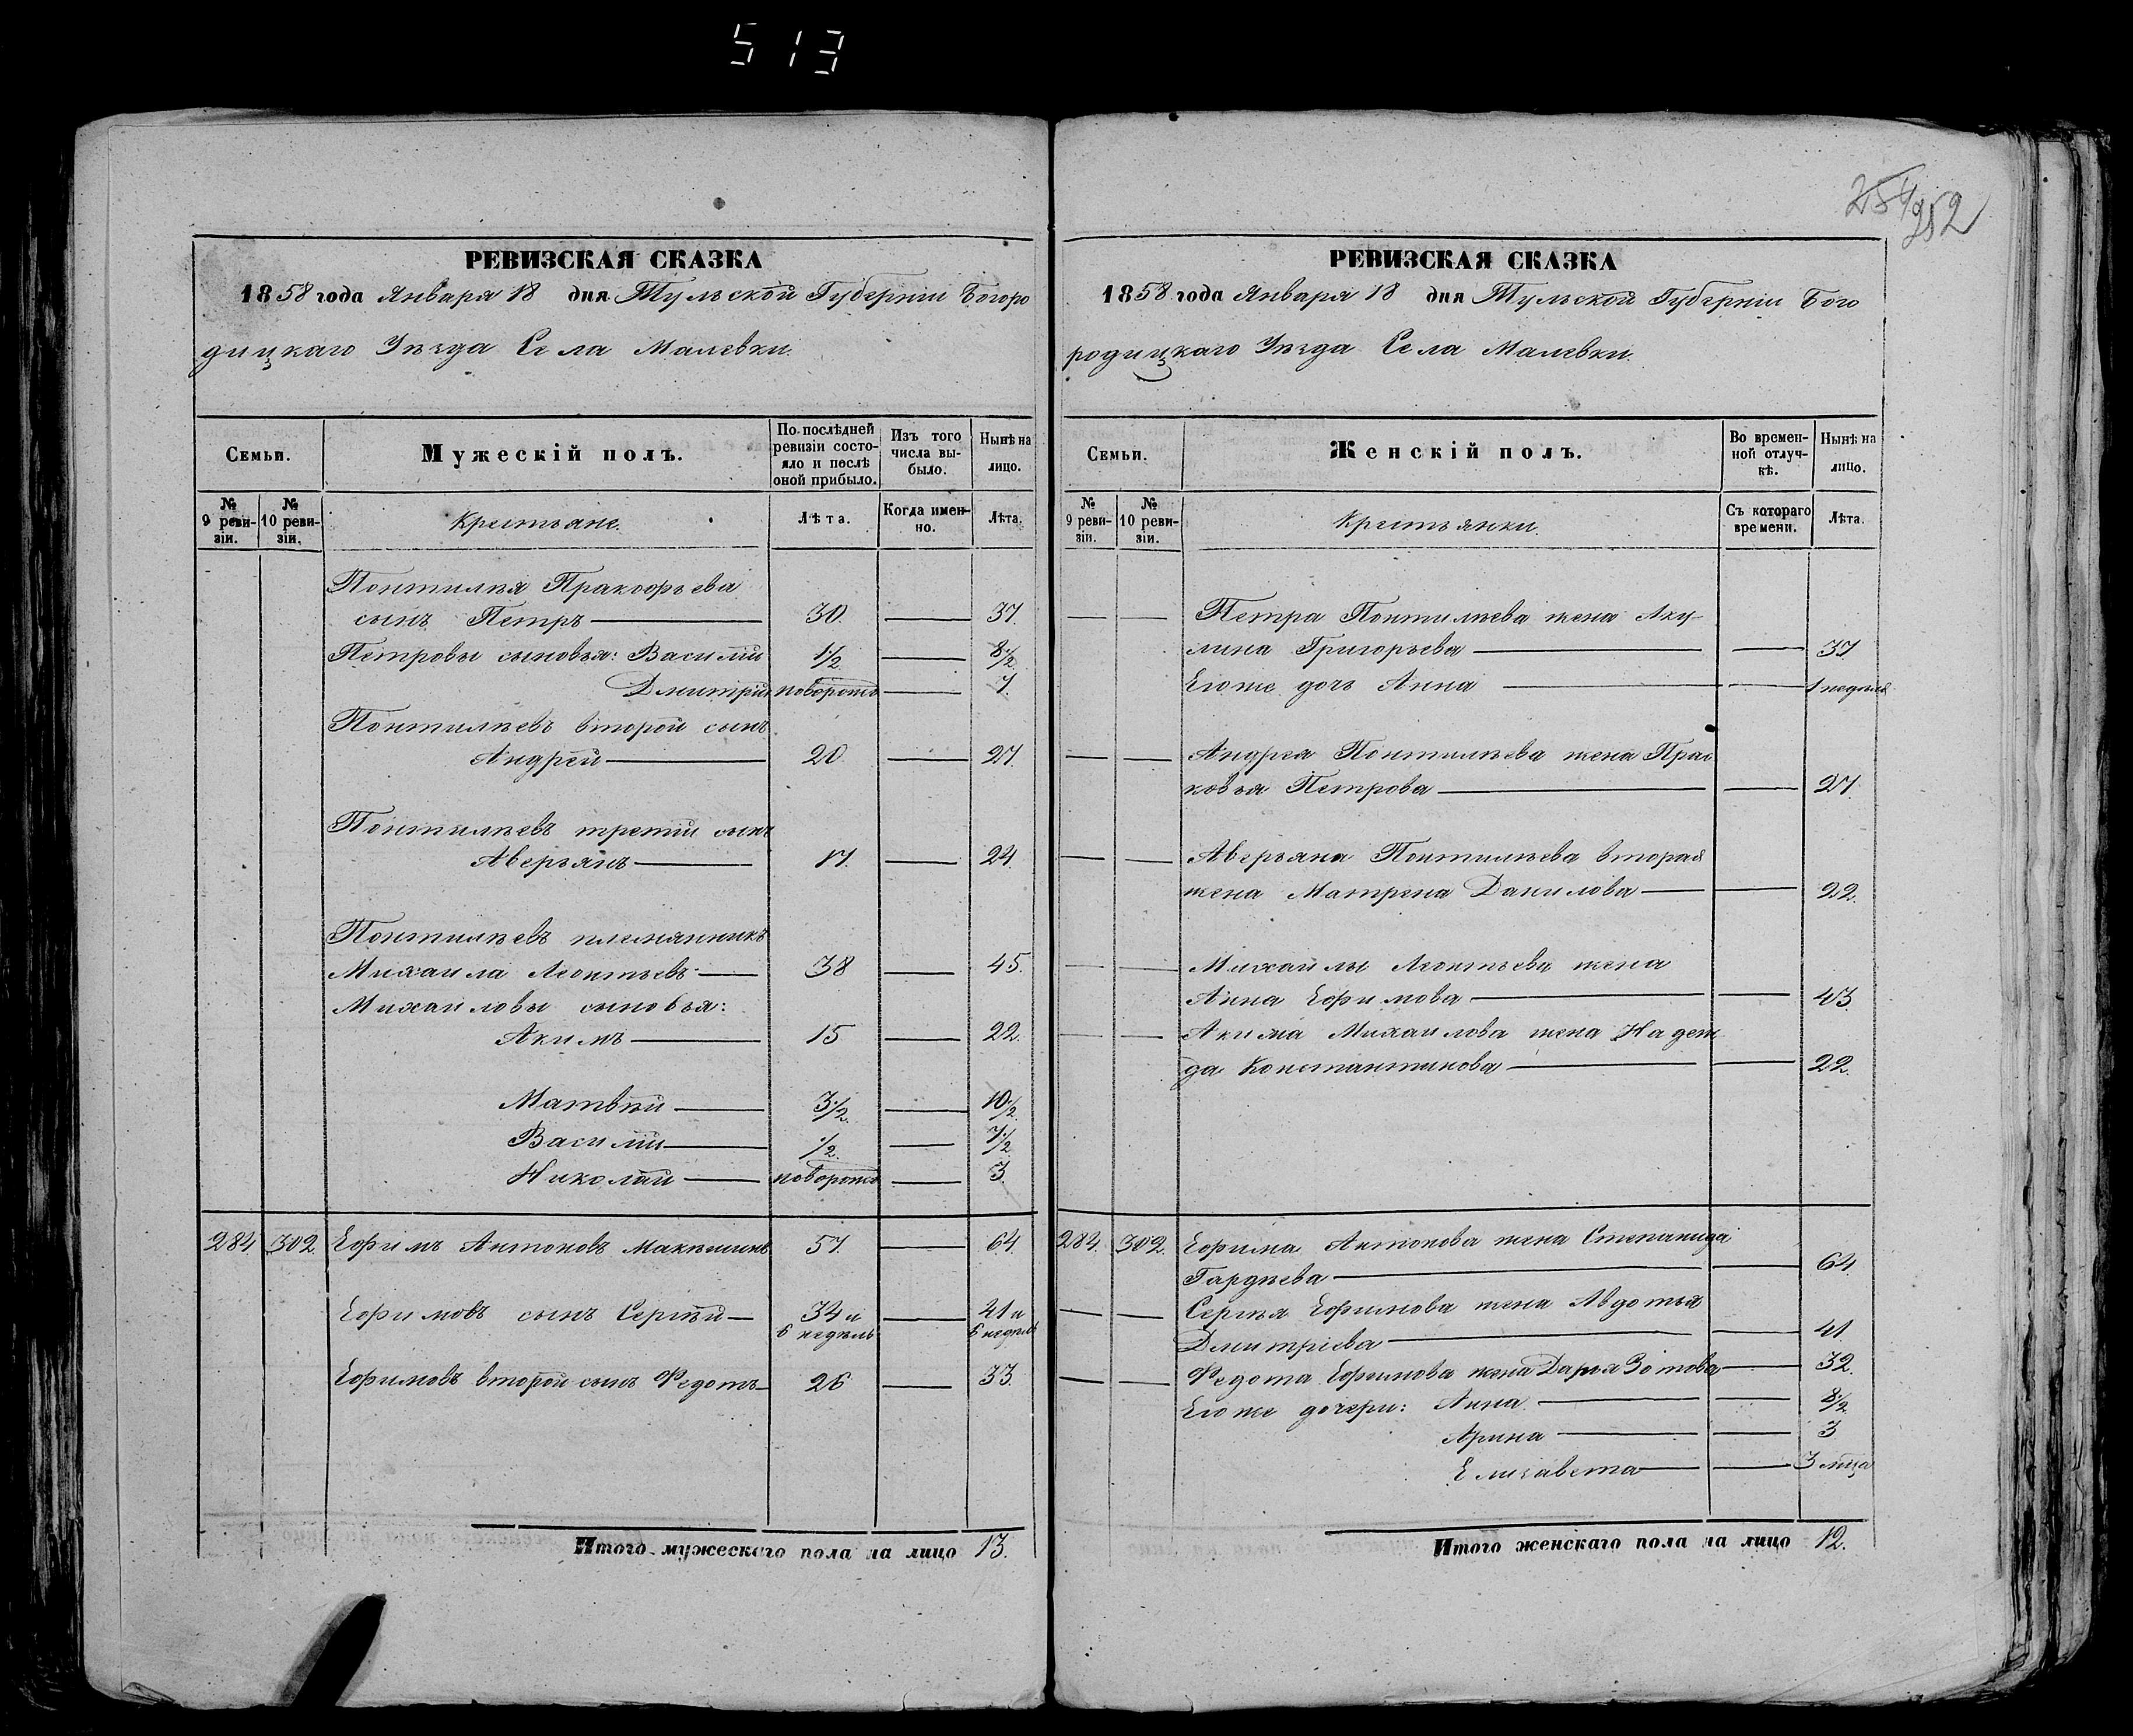 513
254
252
РЕВИЗСКАЯ СКАЗКА
1858 года Января 18 дня Тульской Губерніи Богоро
дицкаго Уѣзда Села Малевки.
Семьи.
Мужескій полъ.
По послѣдней ревизіи состояло и послѣ оной прибыло.
Изъ того числа выбыло.
Нынѣ на лицо.
№ 9 ревизіи.
№ 10 ревизіи.
Крестьяне.
Лѣта.
Когда именно.
Лѣта.
Понтилѣя Пракофьева
сынъ Петръ — 30. — 37.
Петровы сыновья: Василій 1½ — 8½
Дмитрій новорожд — 7.
Понтилѣевъ второй сынъ
Андрей — 20 — 27.
Понтилѣевъ третій сынъ
Аверьянъ — 17. — 24.
Понтилѣевъ племянникъ
Михаила Леонтьевъ — 38 — 45.
Михайловы сыновья:
Акимъ — 15 — 22.
Матвѣй — 3½ — 10½
Василій — ½ — 7½
Николай — новорожд — 3
284 302 Ефимъ Антоновъ Макѣшинъ 57. — 64.
Ефимовъ сынъ Сергѣй — 34 и — 41 и
6 недѣль 6 недѣль
Ефимовъ второй сынъ Федотъ — 26 — 33.
Итого мужескаго пола на лицо 13.
РЕВИЗСКАЯ СКАЗКА
1858 года Января 18 дня Тульской Губерніи Бого
родицкаго Уѣзда Села Малевки.
Семьи.
Женскій полъ.
Во временной отлучкѣ.
Нынѣ на лицо.
№ 9 ревизіи.
№ 10 ревизіи.
Крестьянки.
Съ котораго времени.
Лѣта.
— — Петра Понтилѣева жена Аку-
лина Григорьева — — 37
Его же дочь Анна — — 1 недѣля
— — Андрея Понтилѣева жена Прас
ковья Петрова — — 27.
— — Аверьяна Понтилѣева вторая
жена Матрена Данилова — — 22.
— — Михайлы Леонтьева жена
Анна Ефимова — — 43
— — Акима Михаилова жена Надеж
да Константинова — — 22.
284. 302. Ефима Антонова жена Степанида
Гардѣева — — 64.
— — Сергѣя Ефимова жена Авдотья
Дмитріева — — 41.
— — Федота Ефимова жена Дарья Зотова — 32.
Его же дочери: Анна — — 8½
Арина — — 3
Елизавета — — 3 мѣца
Итого женскаго пола на лицо 12.